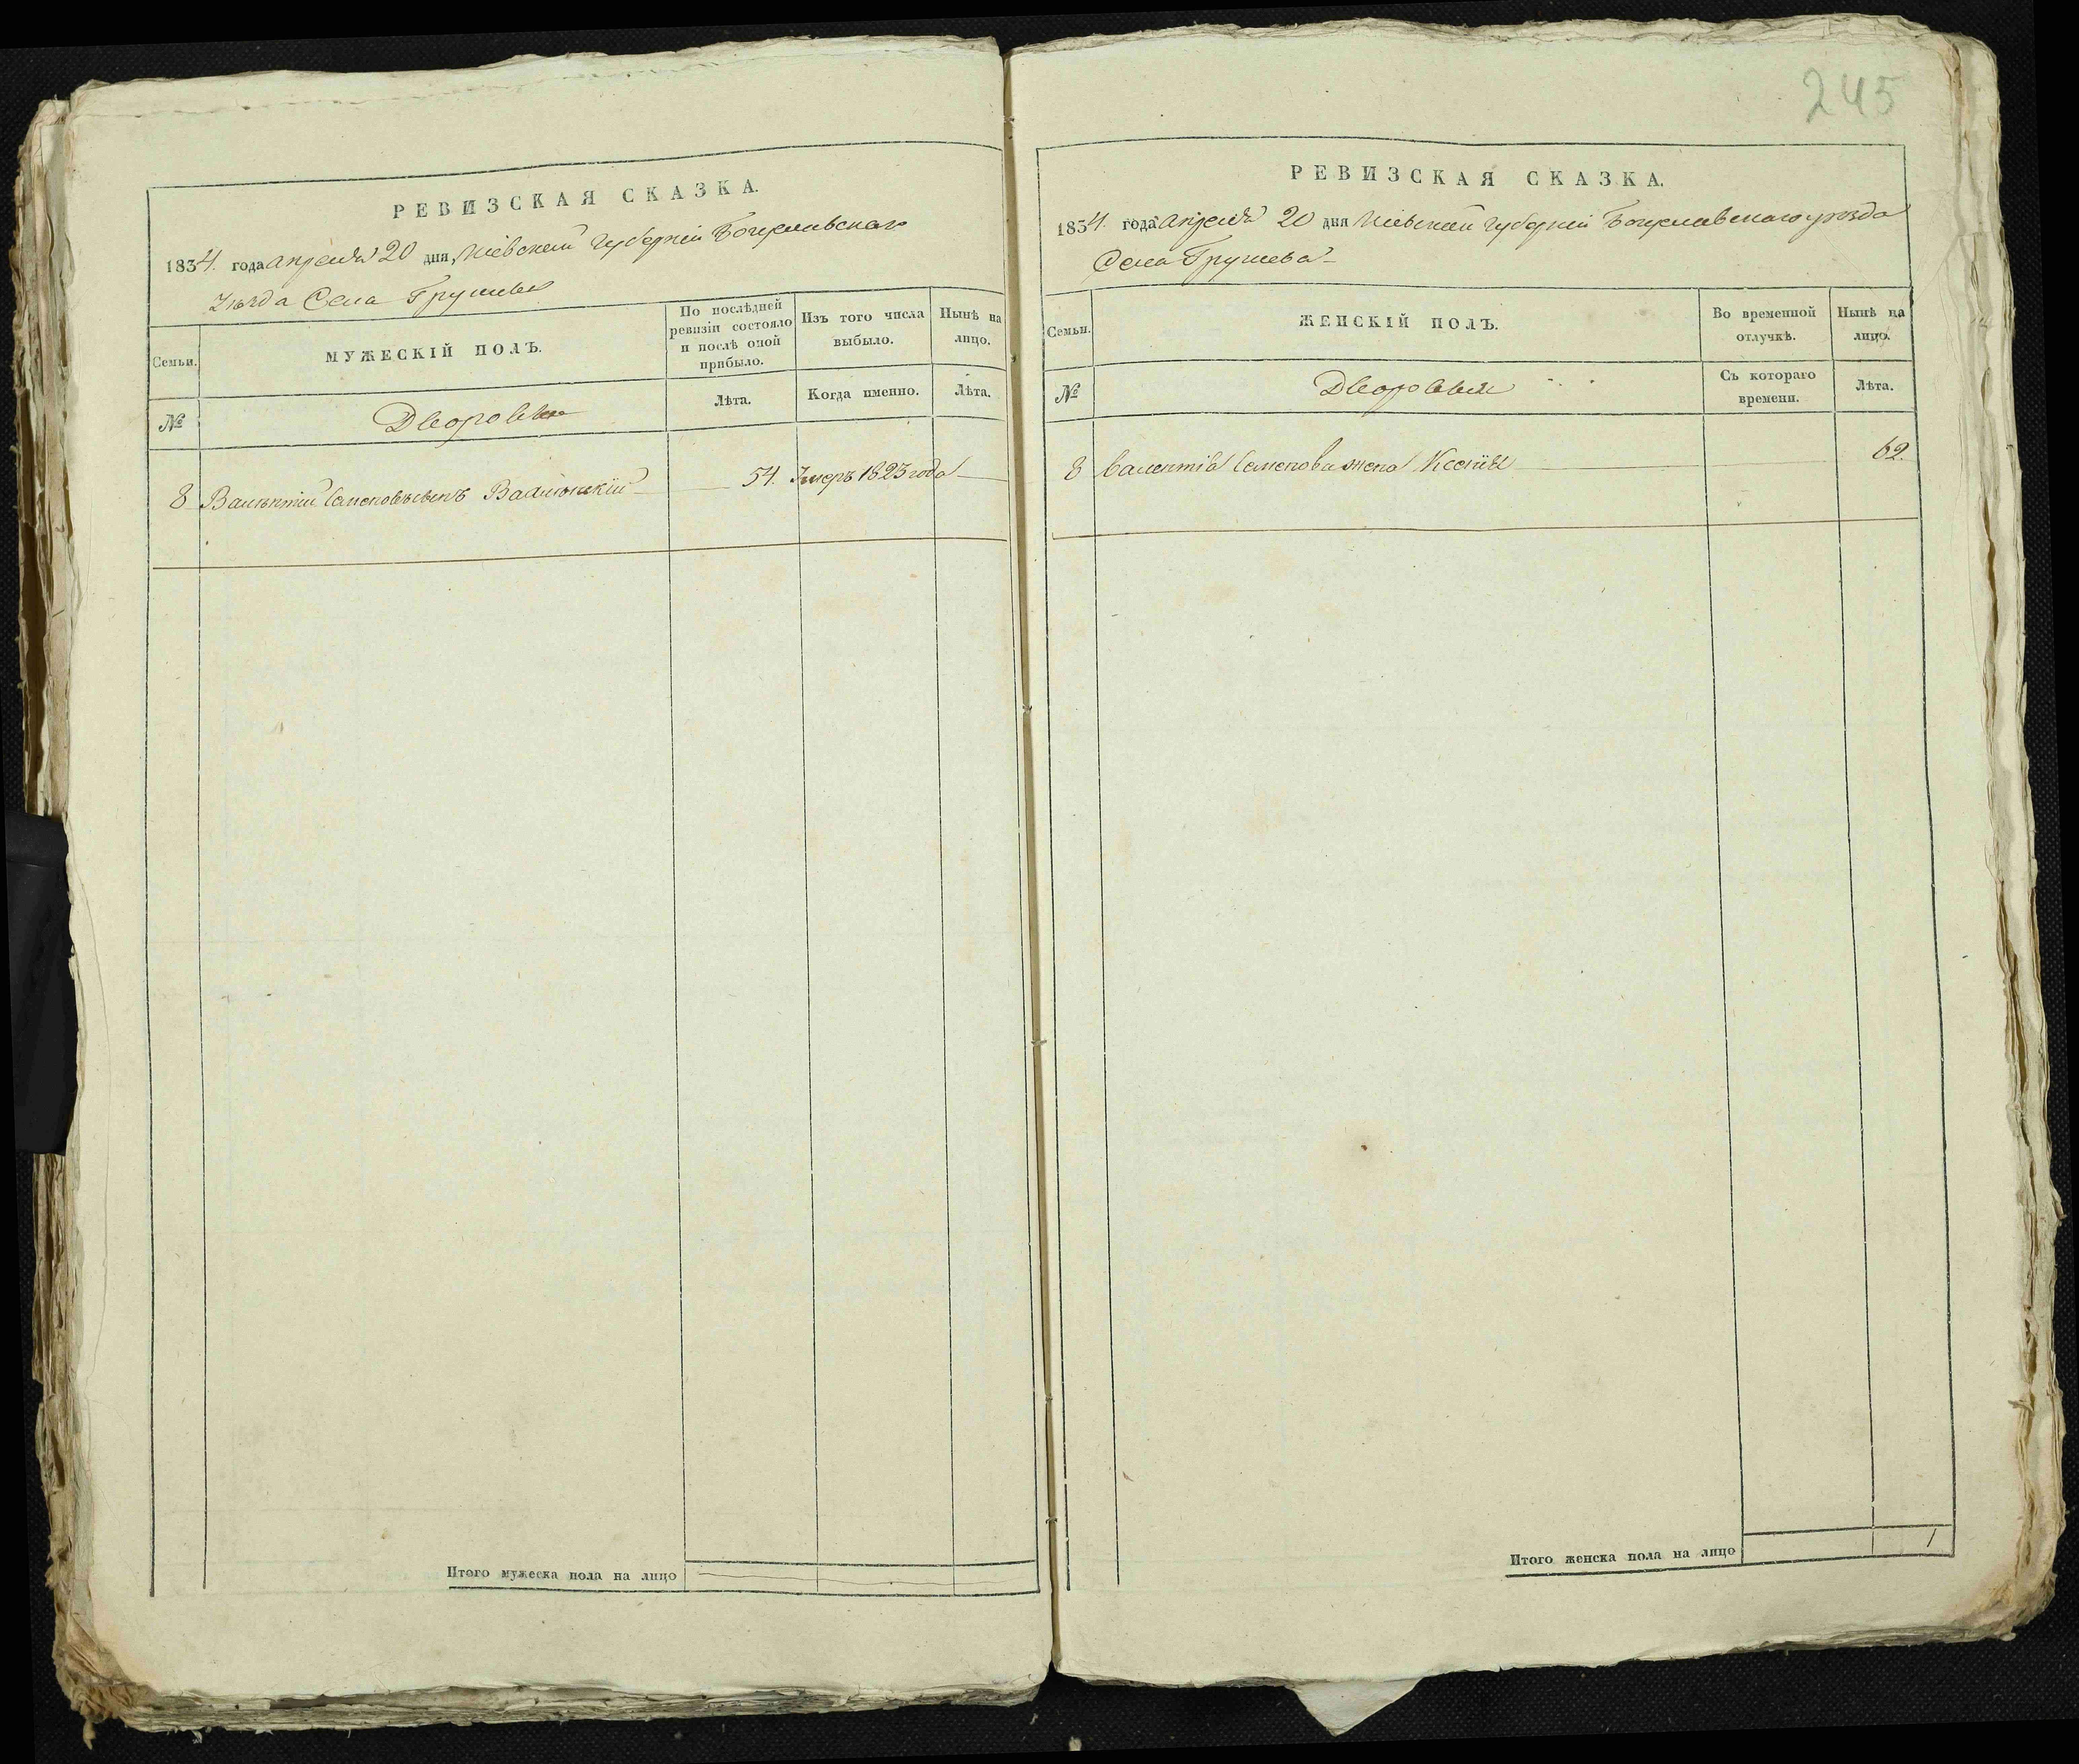 245
РЕВИЗСКАЯ СКАЗКА.
1834. года апреля 20 дня, Кіевской губерніи Богуславскаго
Уѣзда Села Грушева
Семьи.
МУЖЕСКІЙ ПОЛЪ.
По послѣдней
ревизіи состояло
и послѣ оной
прибыло.
Изъ того числа
выбыло.
Нынѣ на
лицо.
№
Дворовые
Лѣта.
Когда именно.
Лѣта.
8 Валентій Семеновъ сынъ 54. Умеръ 1823 года
Итого мужеска пола на лицо
РЕВИЗСКАЯ СКАЗКА.
1834. года апреля 20 дня Кіевской губерніи Богуславскаго уѣзда
Села Грушева
Семьи.
ЖЕНСКІЙ ПОЛЪ.
Во временной
отлучкѣ.
Нынѣ на
лицо.
№
Дворовыя
Съ котораго
времени.
Лѣта.
8 Валентія Семенова жена Ксенія 62.
Итого женска пола на лицо 1